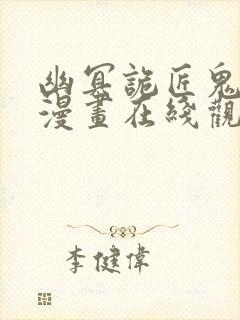 幽冥詭匠鬼
漫畫在綫觀
李健偉